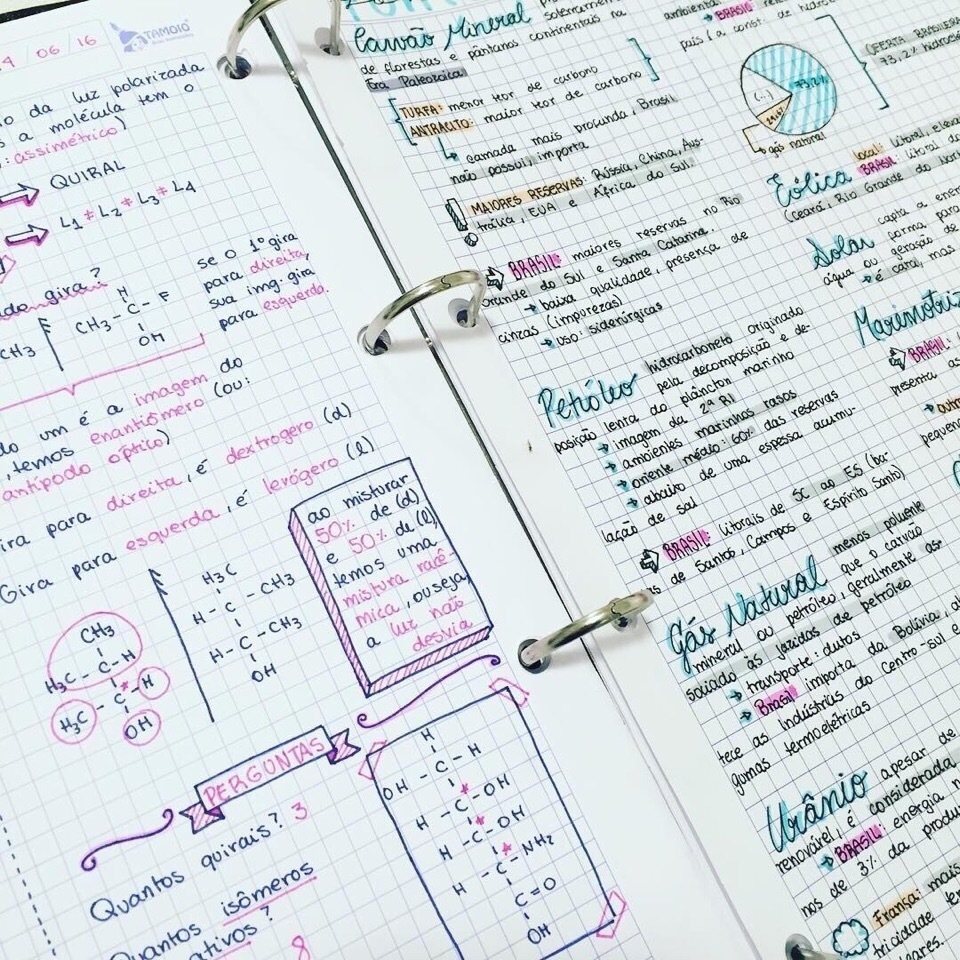 / 06 / 16
TAMOIO
da luz polarizada
a molécula tem o
assimétrico)
QUIRAL
L1 ≠ L2 ≠ L3 ≠ L4
gira?
se o 1º gira
para direita,
sua img. gira
para esquerda.
H
CH3 - C - F
OH
CH3
um é a imagem do
, temos enantiômero (ou:
antípodo óptico)
para direita, é dextrogero (d)
Gira para esquerda, é levógero (l)
ao misturar
50% de (d)
e 50% de (l),
temos uma
mistura racê-
mica, ou seja,
a luz não
desvia
CH3
H3C - C - H
H3C - C* - H
OH
H3C
H - C - CH3
H - C - CH3
OH
PERGUNTAS
Quantos quirais? 3
Quantos isômeros
ativos?
8
H
OH - C - H
H - C* - OH
H - C* - OH
H - C* - NH2
C = O
OH
Carvão Mineral
de florestas e pântanos continentais na
Era Paleozoica
TURFA: menor teor de carbono
ANTRACITO: maior teor de carbono
camada mais procurada, Brasil
não possui, importa
MAIORES RESERVAS: Rússia, China, Aus-
trália, EUA e África do Sul
BRASIL: maiores reservas no Rio
Grande do Sul e Santa Catarina
baixa qualidade, presença de
cinzas (impurezas)
uso: siderúrgicas
Petróleo hidrocarboneto originado
pela decomposição e de-
posição lenta do plâncton marinho
imagem da 2ª RI
ambientes marinhos rasos
oriente médio: 60% das reservas
abaixo de uma espessa acumu-
lação de sal
BRASIL: litorais de SC ao ES (ba-
de Santos, Campos e Espírito Santo)
Gás Natural menos poluente
que o carvão
mineral ou petróleo, geralmente as-
sociado às jazidas de petróleo
transporte: dutos
Brasil importa da Bolívia,
tece as indústrias do Centro-sul e
gumas termoelétricas
Urânio apesar de
renovável, é considerada
BRASIL: energia
nos de 3% da produ
França: mais
tricidade
BRASIL
país (a const. de hidro
OFERTA BRASILEIRA
73,2% hidroelé
73,2%
(...)
gás natural
Eólica local: litoral,
BRASIL: litoral do
(Ceará, Rio Grande do
Solar capta a ener
forma
água ou geração de
é cara, mas
Maremotriz
BRASIL:
presenta
outro
pequen